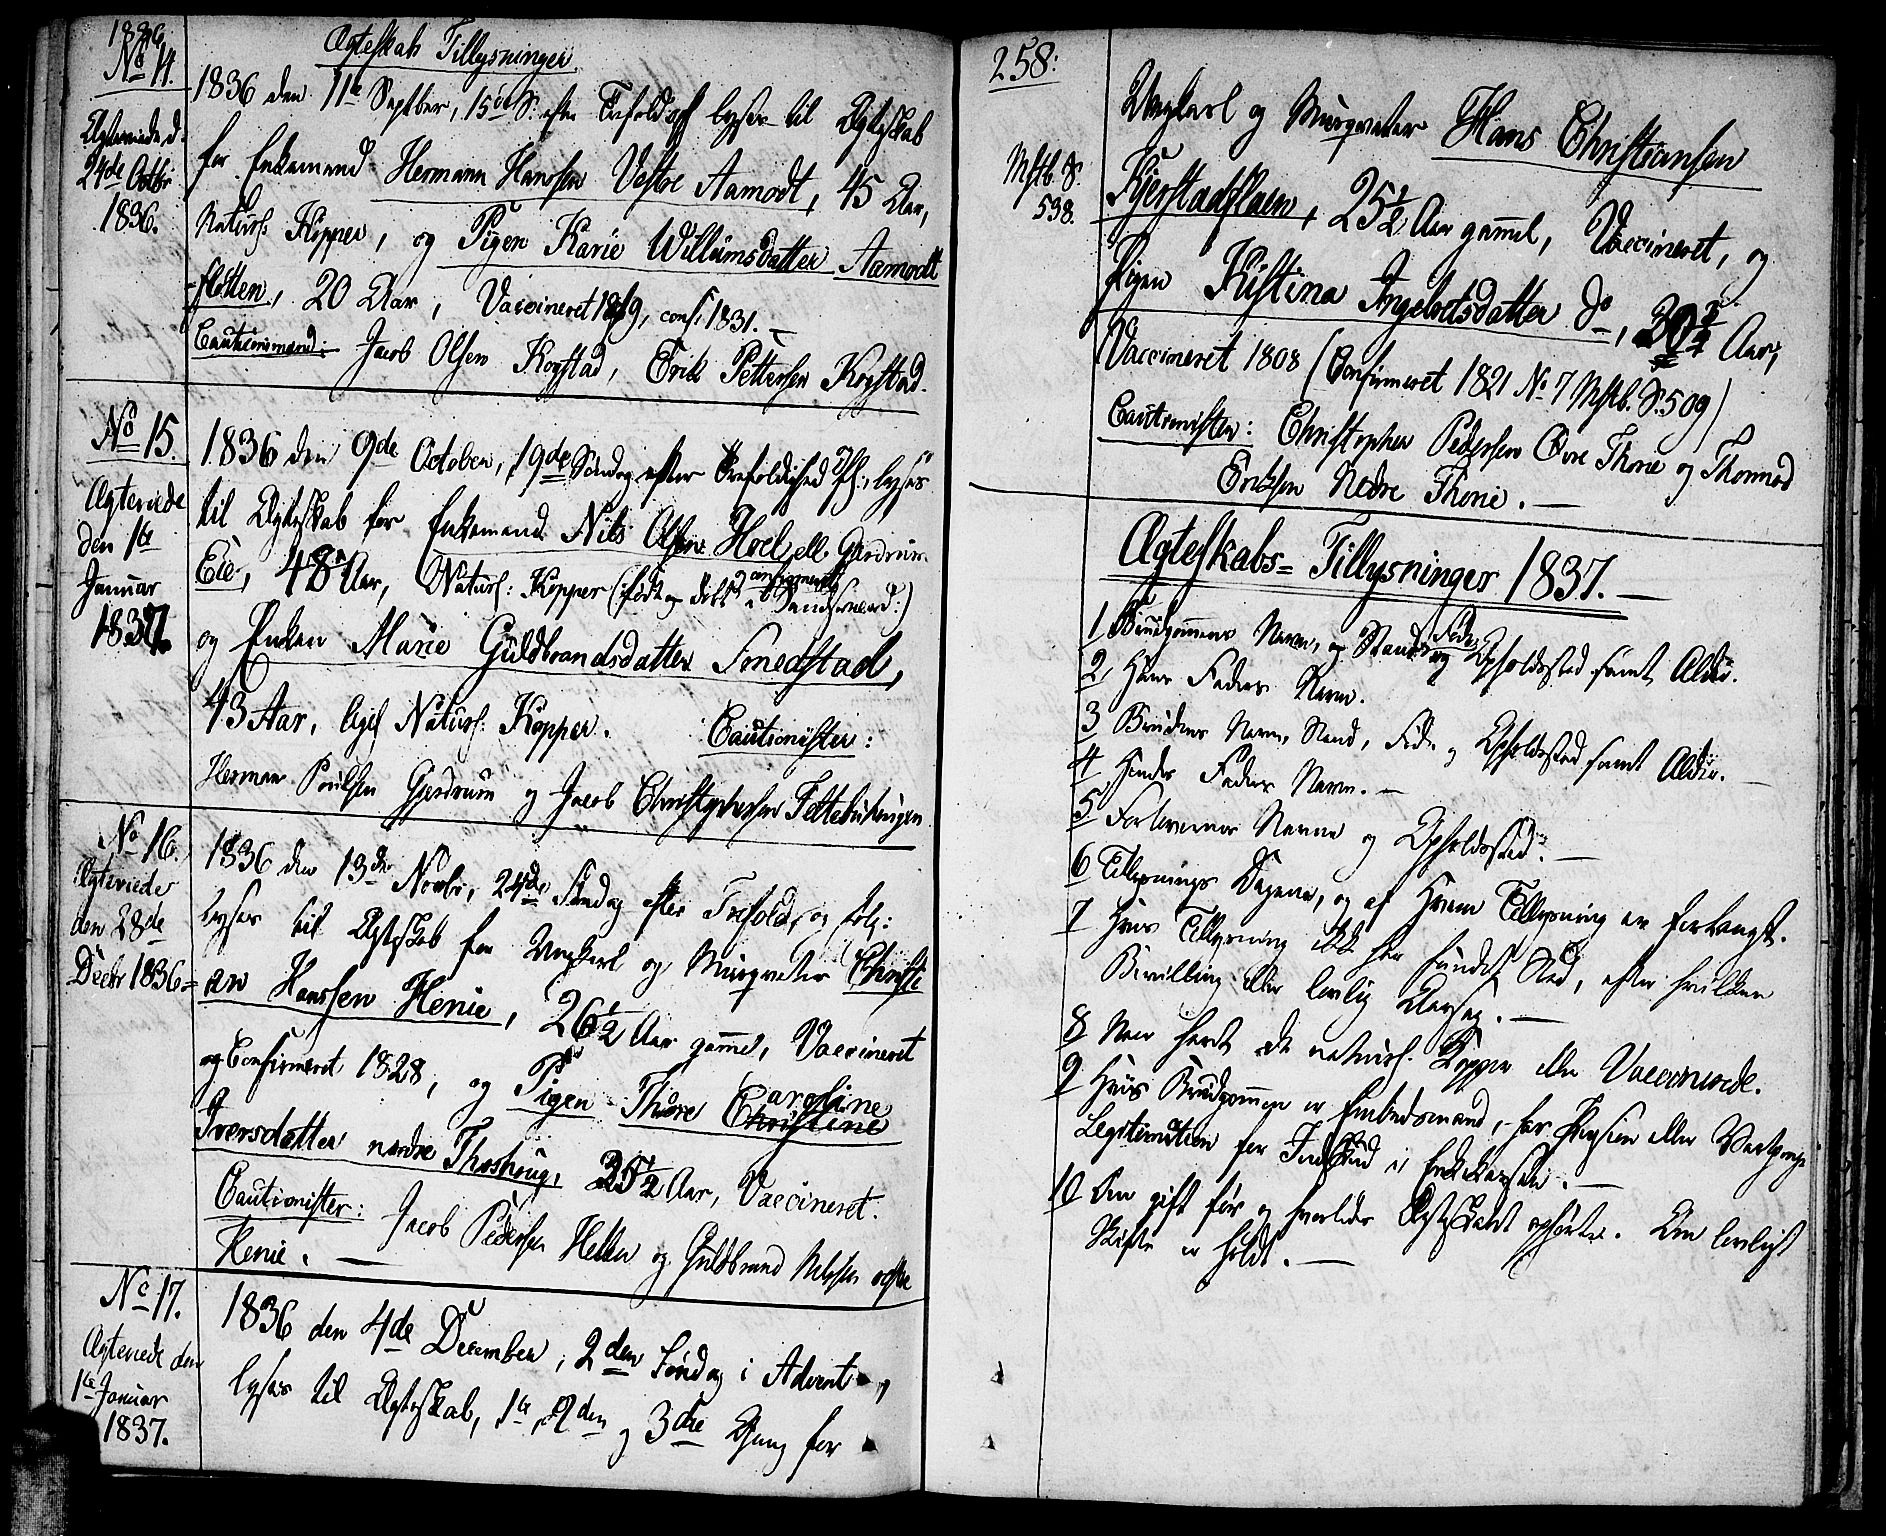 1836
No 14.
Ægteskab Tillysninger
1836 den 11te Septber, 15de S. efter Trefold: lyses til Ægteskab
for Enkemand Hermann Hansen Vestre Aamodt, 45 Aar,
Naturl: Kopper, og Pigen Karie Willumsdatter Aamodt
fløtten, 20 Aar, Vaccineret 1819, conf: 1831. —
Cautionsmænd: Jacob Olsen Kogstad, Erik Pettersen Kogstad.
Ægteviede d.
24de Octbr
1836.
No 15.
1836 den 9de October, 19de Søndag efter Trefoldighed lyses
til Ægteskab for Enkemand Nils Olsen Hoel, ell Gjerdrum
Eie, 48 Aar, Naturl: Kopper (: født og døbt confirmeret i :)
og Enken Marie Guldbrandsdatter Smedstad,
43 Aar, Naturl: Kopper. Cautionister:
Herman Poulsen Gjerdrum og Jacob Christophersen
Ægteviede
den 1te
Januar
1837.
No 16.
1836 den 13de Novbr, 24de Søndag efter Trefold: og følg:
lyses til Ægteskab for Ungkarl og Christi
an Hanssen Henie, 26½ Aar gammel, Vaccineret
og Confirmeret 1828, og Pigen Thore Caroline
Iversdatter nordre Thoshoug, 25½ Aar, Vaccineret.
Cautionister: Jacob Pedersen og Guldbrand Nelsen
Henie. —
Ægteviede
den 28de
Decbr 1836
No 17.
1836 den 4de December, 2den Søndag i Advent,
lyses til Ægteskab, 1te, 2den og 3die Gang for
Ægteviede den
1te Januar
1837.
258:
Ungkarl og Hans Christiansen
Kjerstadflaen, 25½ Aar gammel, Vaccineret, og
Pigen Kistina Ingebretsdatter do, 30¾ Aar,
Vaccineret 1808 (Confirmeret 1821 No 7 Mstb. S. 509)
Cautionister: Christopher Pedersen Øvre Thorie og Thormod
Eriksen Nedre Thorie. —
Mstb. S.
538.
Ægteskabs-Tillysninger 1837. —
1 Brudgommens Navn, og Stand, Føde og Opholdssted samt Alder.
2, Hans Faders Navn.
3 Brudens Navn, Stand, Føde og Opholdssted samt Alder.
4 Hendes Faders Navn. —
5 Forlovernes Navne og Opholdssted. —
6 Tillysnings Dagene, og af Hvem Tillysning er forlangt.
7 Hvis Tillysning ikke har fundet Sted, efter hvilken
Bevilling eller lovlig Aarsag. —
8 Om havt de naturl: Kopper eller Vaccinerede.
9 Hvis Brudgommen er Embedsmand, har Pension eller
Legitimation for Indskud i Enkekassen. —
10 Om gift før og hvorledes Ægteskabet ophørte. Om lovligt
Skifte er holdt. —